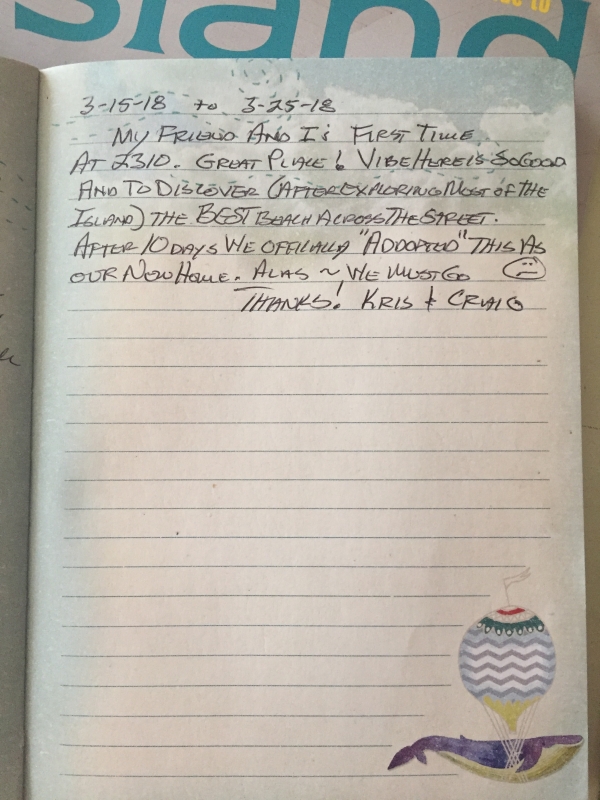 sland
to
3-15-18 to 3-25-18
MY FRIEND AND I'S FIRST TIME
AT 2310. GREAT PLACE! VIBE HERE IS SO GOOD
AND TO DISCOVER (AFTER EXPLORING MOST OF THE
ISLAND) THE BEST BEACH ACROSS THE STREET.
AFTER 10 DAYS WE OFFICIALLY "ADDOPTED" THIS AS
OUR NOW HOME. ALAS ~ WE MUST GO
THANKS! KRIS & CRAIG